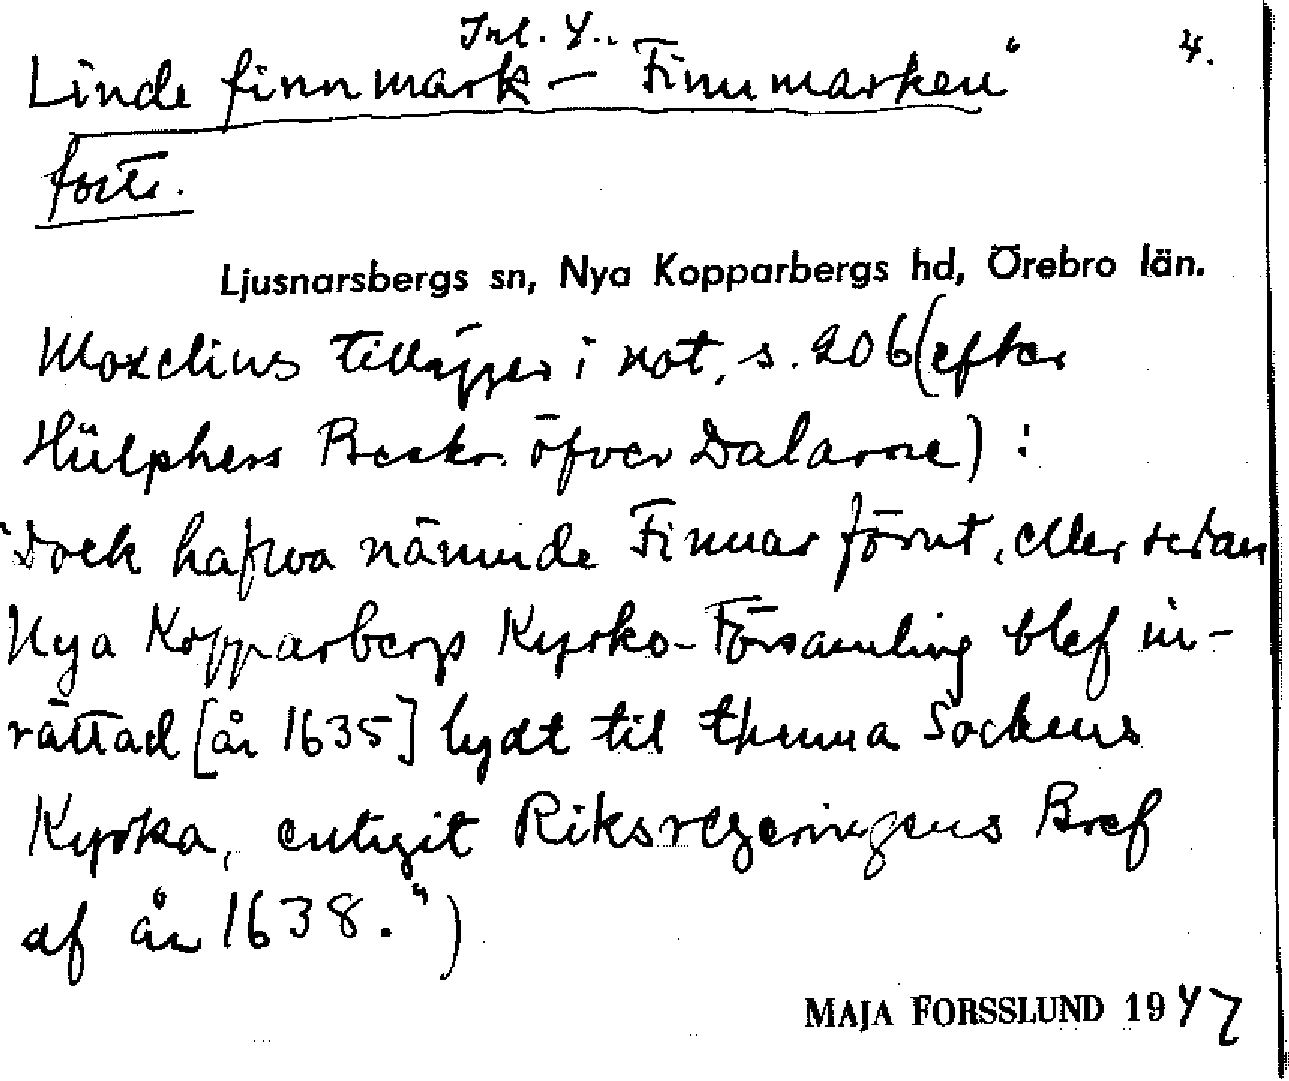 Inl. 4.. 4.
Linde finnmark – Finnmarken"
forts.
Ljusnarsbergs sn, Nya Kopparbergs hd, Örebro län.
Moxelius tillägger i not, s. 206 (efter
Hülphers Beskr. öfver Dalarne) :
"Dock hafwa nämnde Finnar förut, eller sedan
Nya Kopparbergs Kyrko-Församling blef in-
rättad [år 1635] lydt til thenna Sockens
Kyrka, enligit Riksregeringens Bref
af år 1638.")
MAJA FORSSLUND 1947